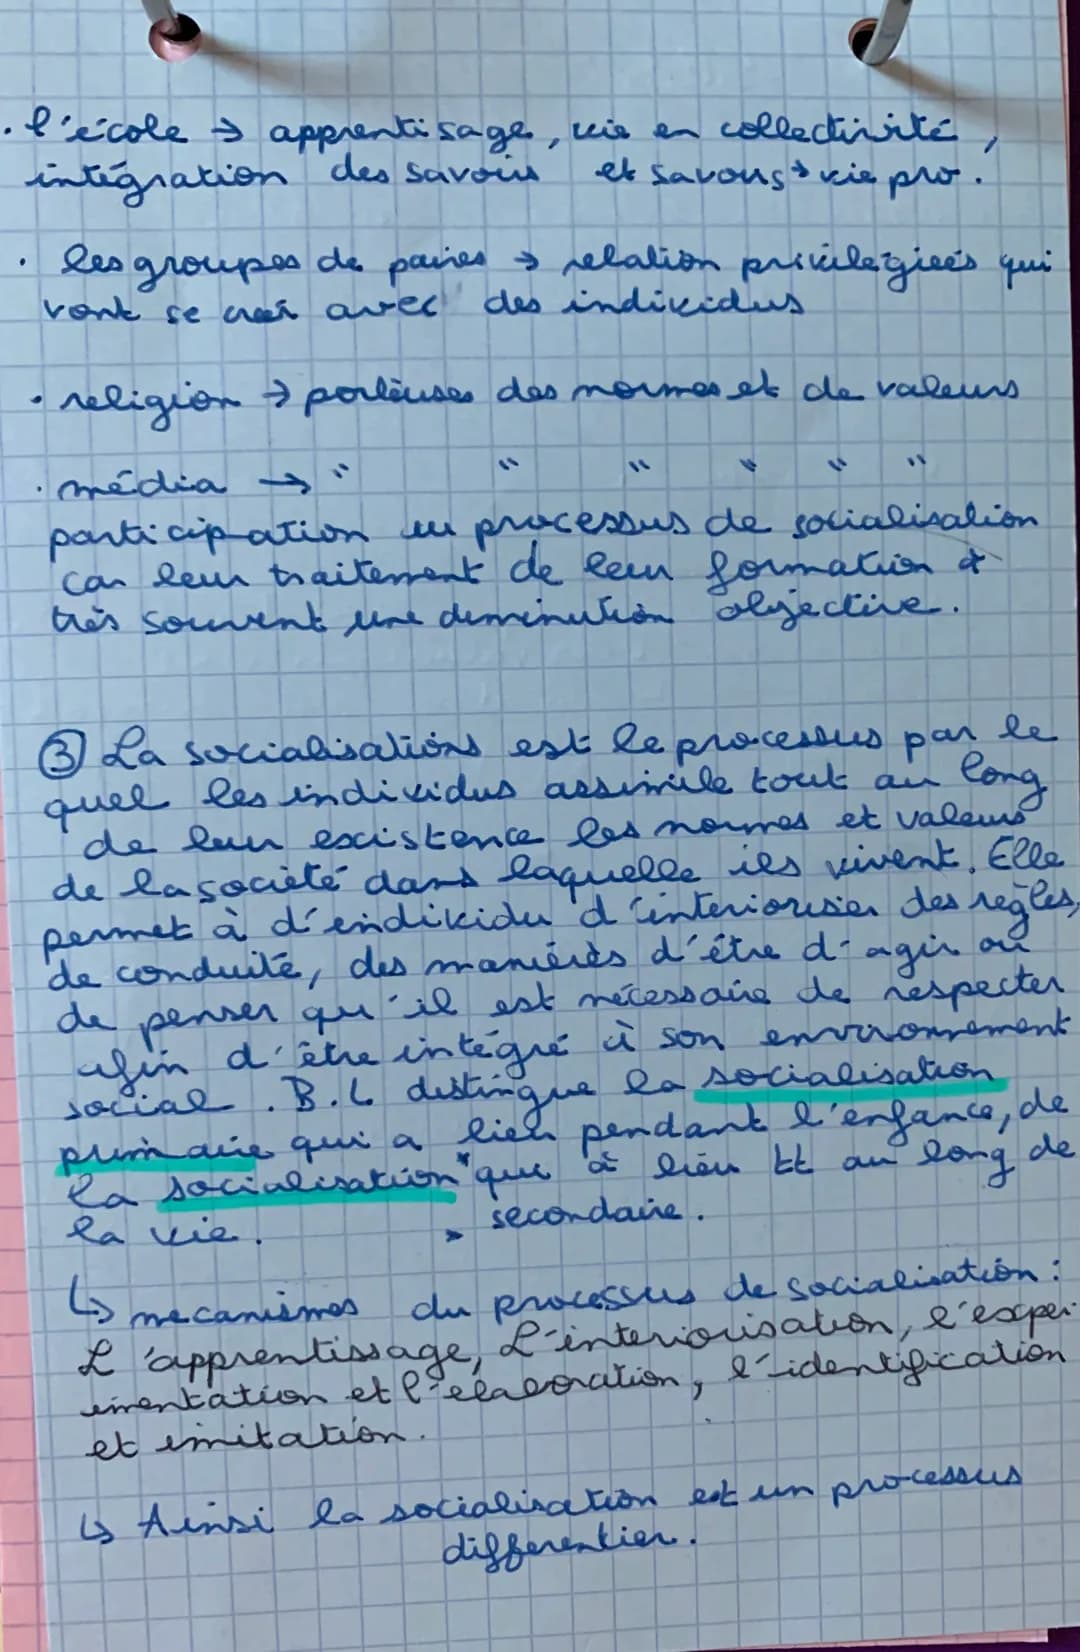 . l'école → apprentisage, vie en collectivité,
intégration des savoirs et savous → vie pro.
. les groupes de paires → relation privilégieés qui
vont se creér avec des individus
. religion → porteuses des normes et de valeurs
. média → " " " " " "
participation au processus de socialisation
car leur traitement de leur formation +
très souvent une deminution objective.
③ La socialisations est le processus par le
quel les individus assimile tout au long
de leur existence les normes et valeurs
de la societé dans laquelle ils vivent. Elle
permet à d'endividu d'interioriser des règles,
de conduité, des maniérès d'être d'agir ou
de penser qu'il est nécessaire de respecter
afin d'être intégré à son environnement
social. B.L distingue la socialisation
primaire qui a lieu pendant l'enfance, de
la socialisation * qui a lieu tt au long de
la vie. > secondaire.
↳ mecanismes du processus de socialisation :
L'apprentissage, L'interiorisation, l'expér
imentation et l'élaboration, l'identification
et imitation.
↳ Ainsi la socialisation est un processus
differentier.